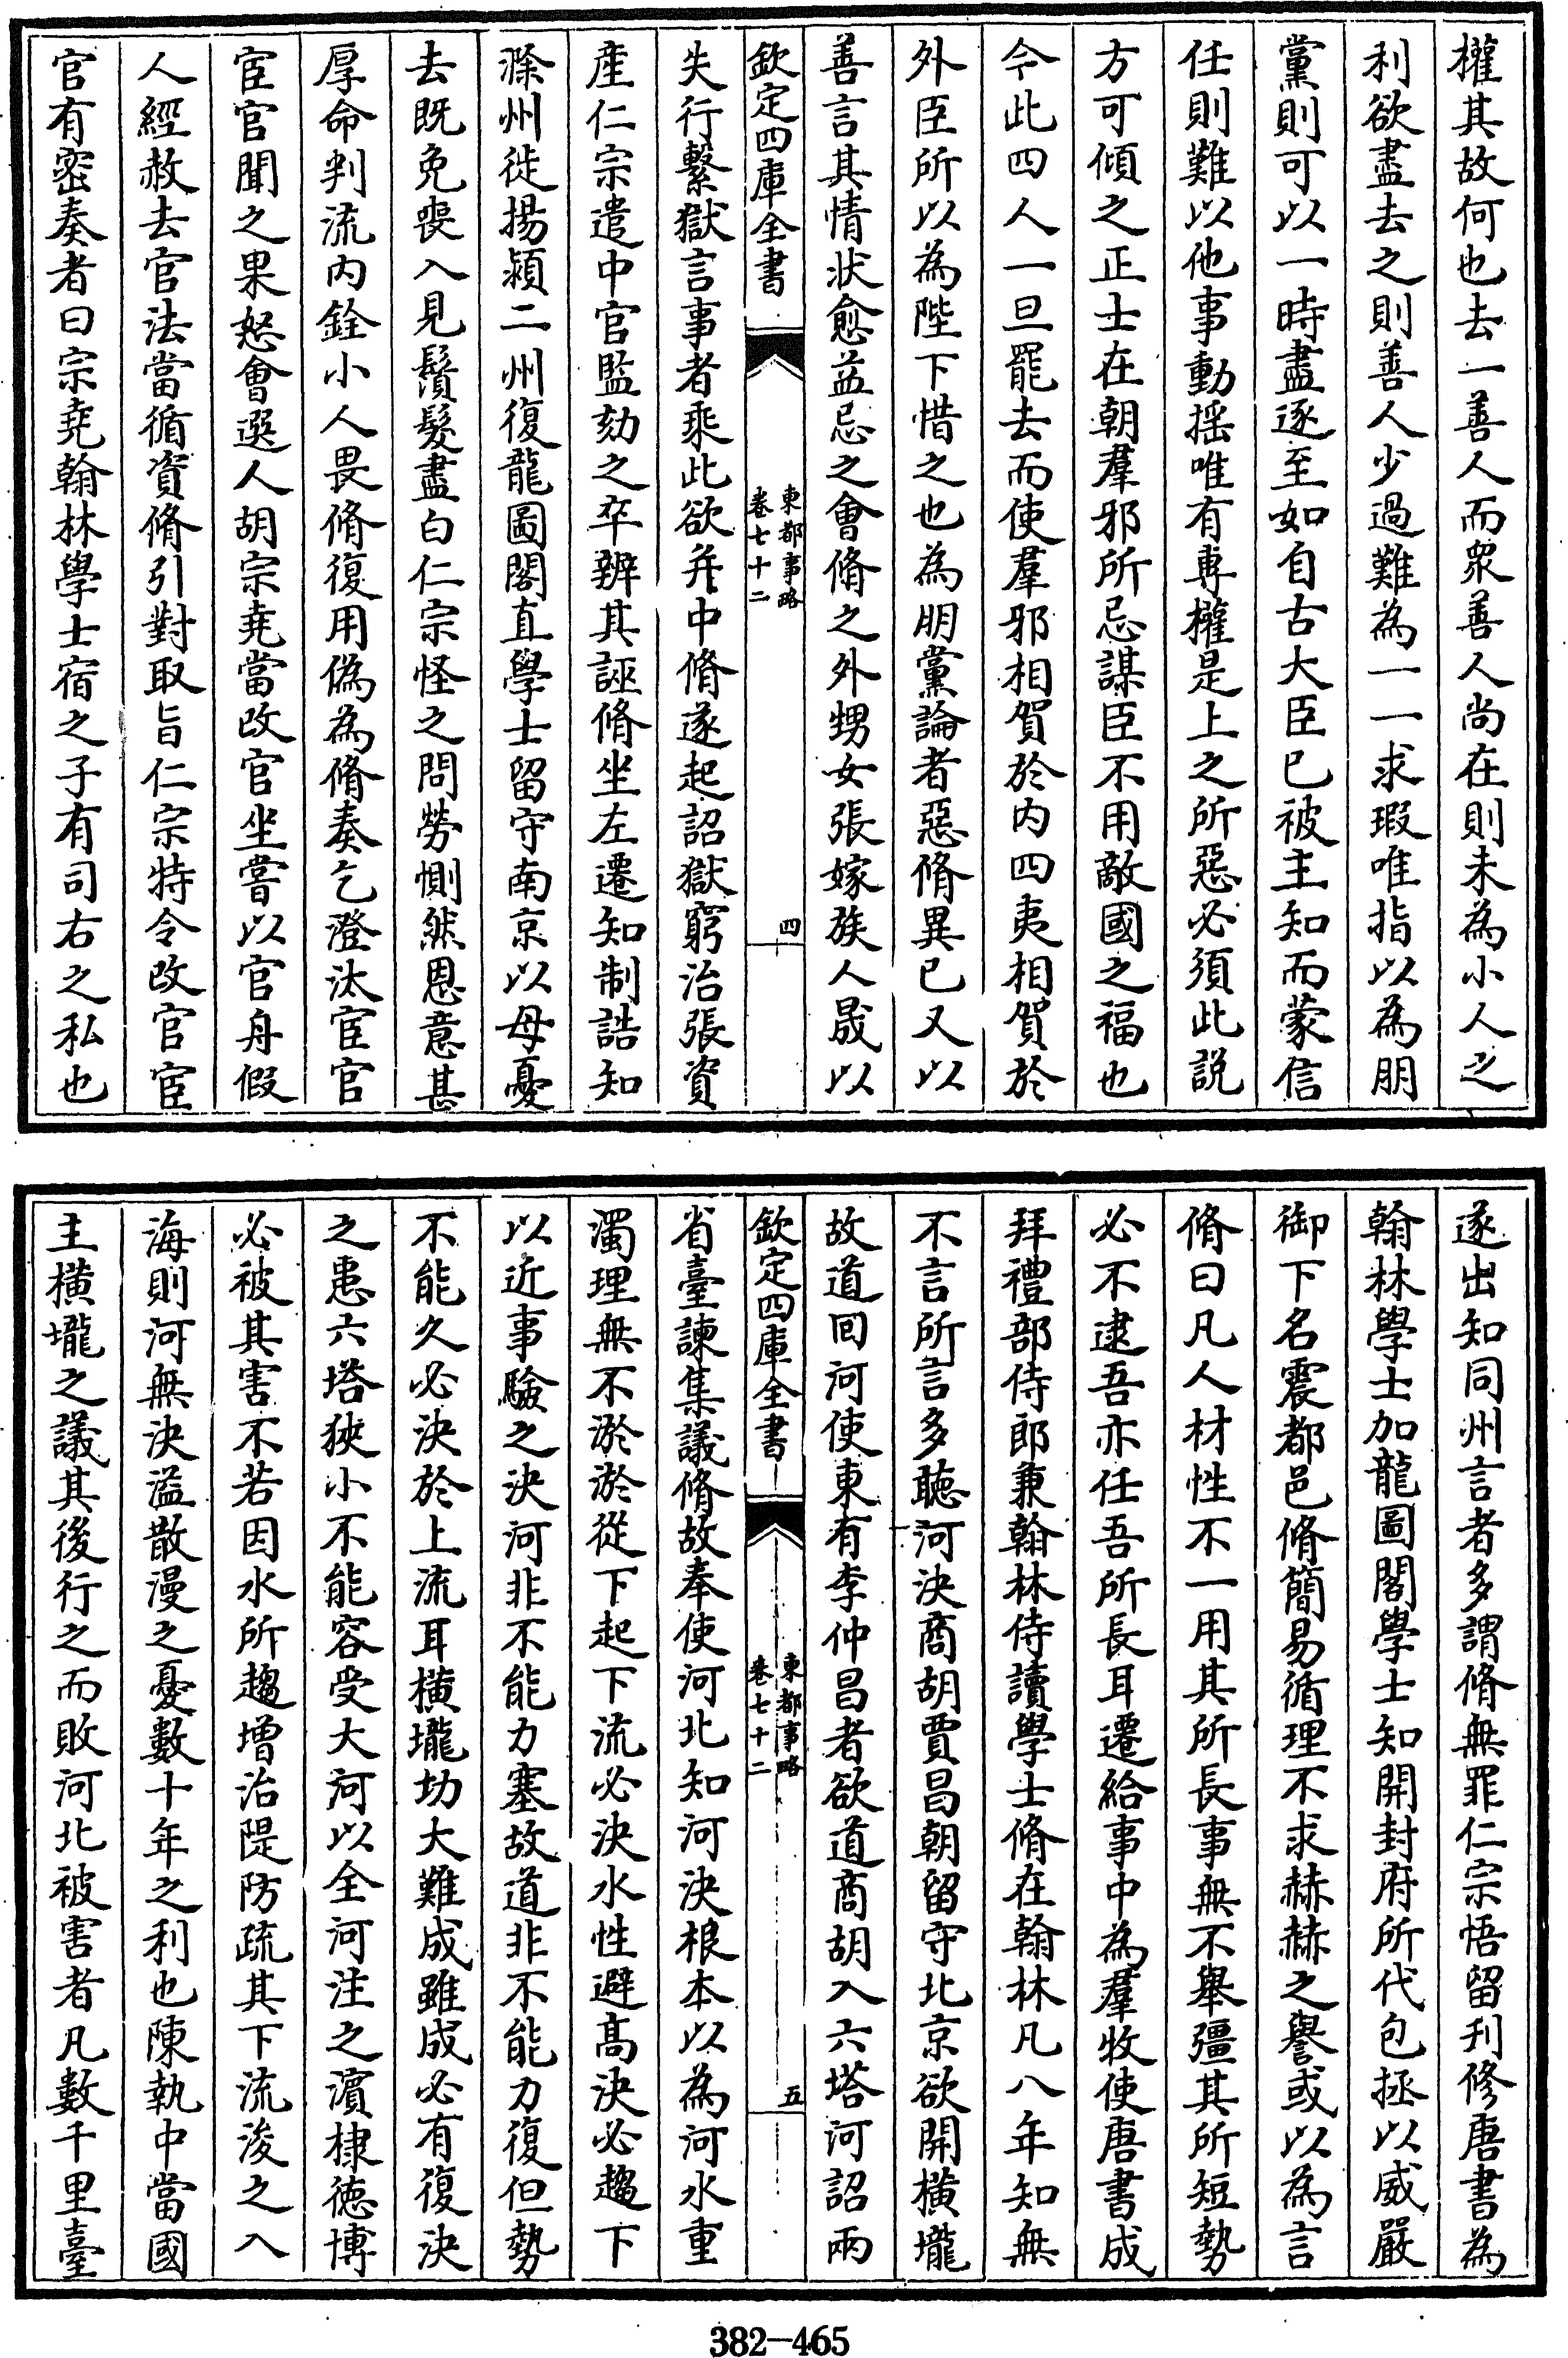 權其故何也去一善人而衆善人尚在則未為小人之
利欲盡去之則善人少過難為一一求瑕唯指以為朋
黨則可以一時盡逐至如自古大臣已被主知而蒙信
任則難以他事動揺唯有專權是上之所惡必須此説
方可傾之正士在朝羣邪所忌謀臣不用敵國之福也
今此四人一旦罷去而使羣邪相賀於内四夷相賀於
外臣所以為陛下惜之也為朋黨論者惡脩異已又以
善言其情狀愈益忌之會脩之外甥女張嫁族人晟以
欽定四庫全書
東都事略
卷七十二
四
失行繫獄言事者乘此欲并中脩遂起詔獄窮治張資
産仁宗遣中官監劾之卒辨其誣脩坐左遷知制誥知
滁州徙揚潁二州復龍圖閣直學士留守南京以母憂
去既免喪入見鬚髮盡白仁宗怪之問勞惻然恩意甚
厚命判流内銓小人畏脩復用偽為脩奏乞澄汰宦官
宦官聞之果怒會選人胡宗堯當改官坐嘗以官舟假
人經赦去官法當循資脩引對取旨仁宗特令改官宦
官有密奏者曰宗堯翰林學士宿之子有司右之私也
遂出知同州言者多謂脩無罪仁宗悟留刋修唐書為
翰林學士加龍圖閣學士知開封府所代包拯以威嚴
御下名震都邑脩簡易循理不求赫赫之譽或以為言
脩曰凡人材性不一用其所長事無不舉彊其所短勢
必不逮吾亦任吾所長耳遷給事中為羣牧使唐書成
拜禮部侍郎兼翰林侍讀學士脩在翰林凡八年知無
不言所言多聽河決商胡賈昌朝留守北京欲開横壠
故道回河使東有李仲昌者欲道商胡入六塔河詔兩
欽定四庫全書
東都事略
卷七十二
五
省臺諫集議脩故奉使河北知河決根本以為河水重
濁理無不淤淤從下起下流必決水性避高決必趨下
以近事驗之決河非不能力塞故道非不能力復但勢
不能久必決於上流耳横壠功大難成雖成必有復決
之患六塔狹小不能容受大河以全河注之濱棣徳博
必被其害不若因水所趨増治隄防疏其下流浚之入
海則河無決溢散漫之憂數十年之利也陳執中當國
主横壠之議其後行之而敗河北被害者凡數千里臺
382-465